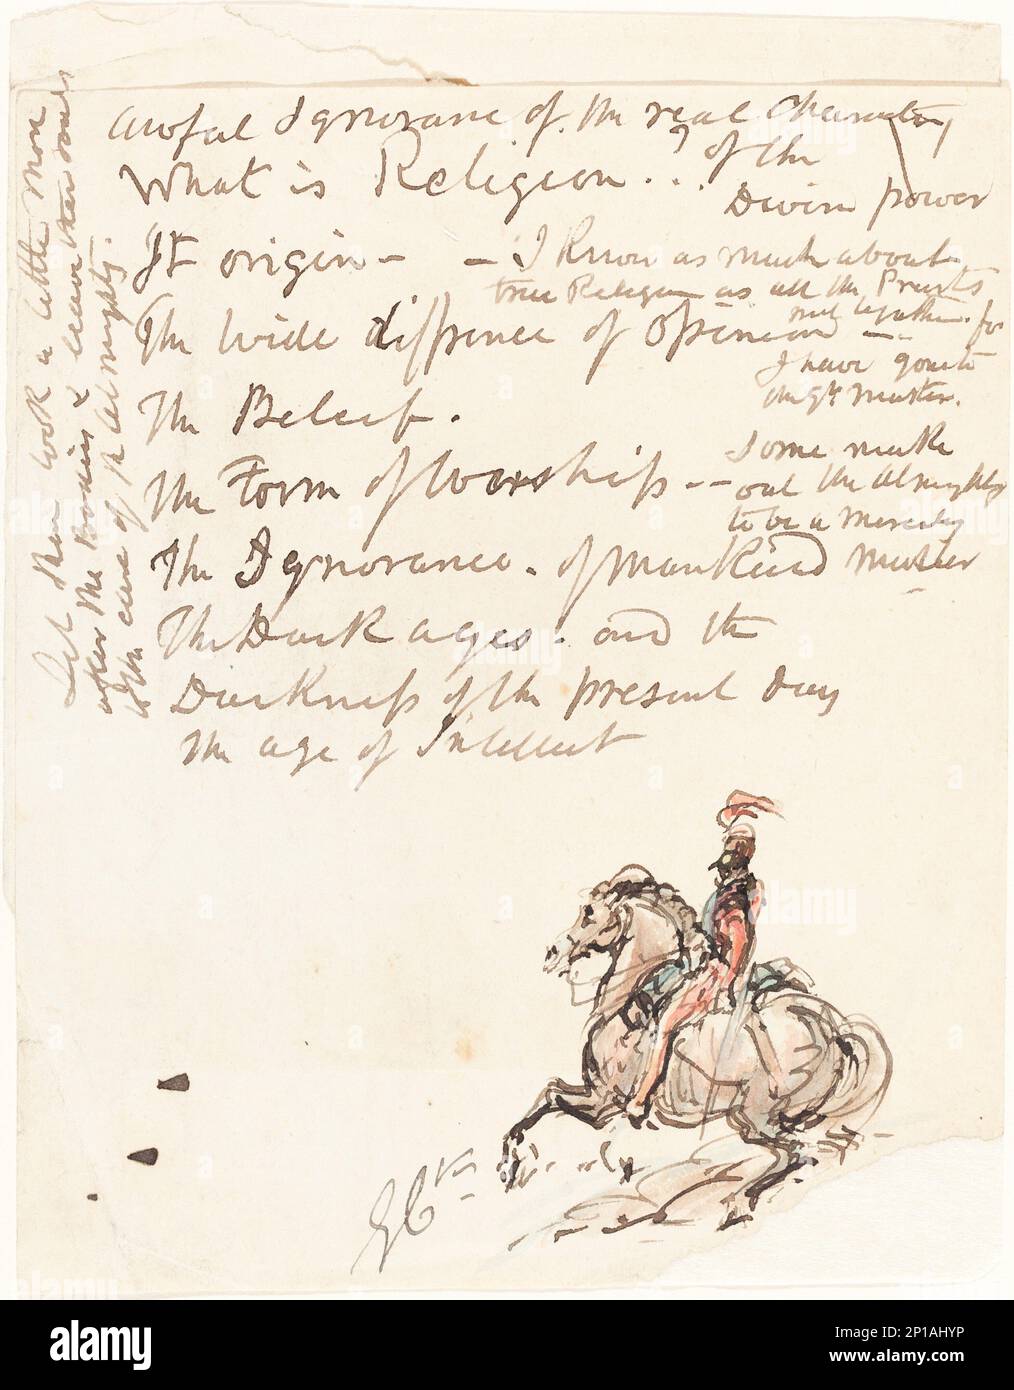 awful Ignorance of the real Character
What is Religion ? of the
Divine power
It origin - - I know as much about
true Religion as all the Priests
put together. for
The wide diffrence of Opinion -
I have gone to
the Gt Master.
The Beleif.
Some make
The Form of Worship -- out the Almighty
to be a
The Ignorance. of Mankind Master
The Dark ages - and the
Darkness of the present day
The age of Intellect
Let them look a little more
after the Bodies & leave the souls
to the care of the Almighty.
alamy
2P1AHYP
www.alamy.com